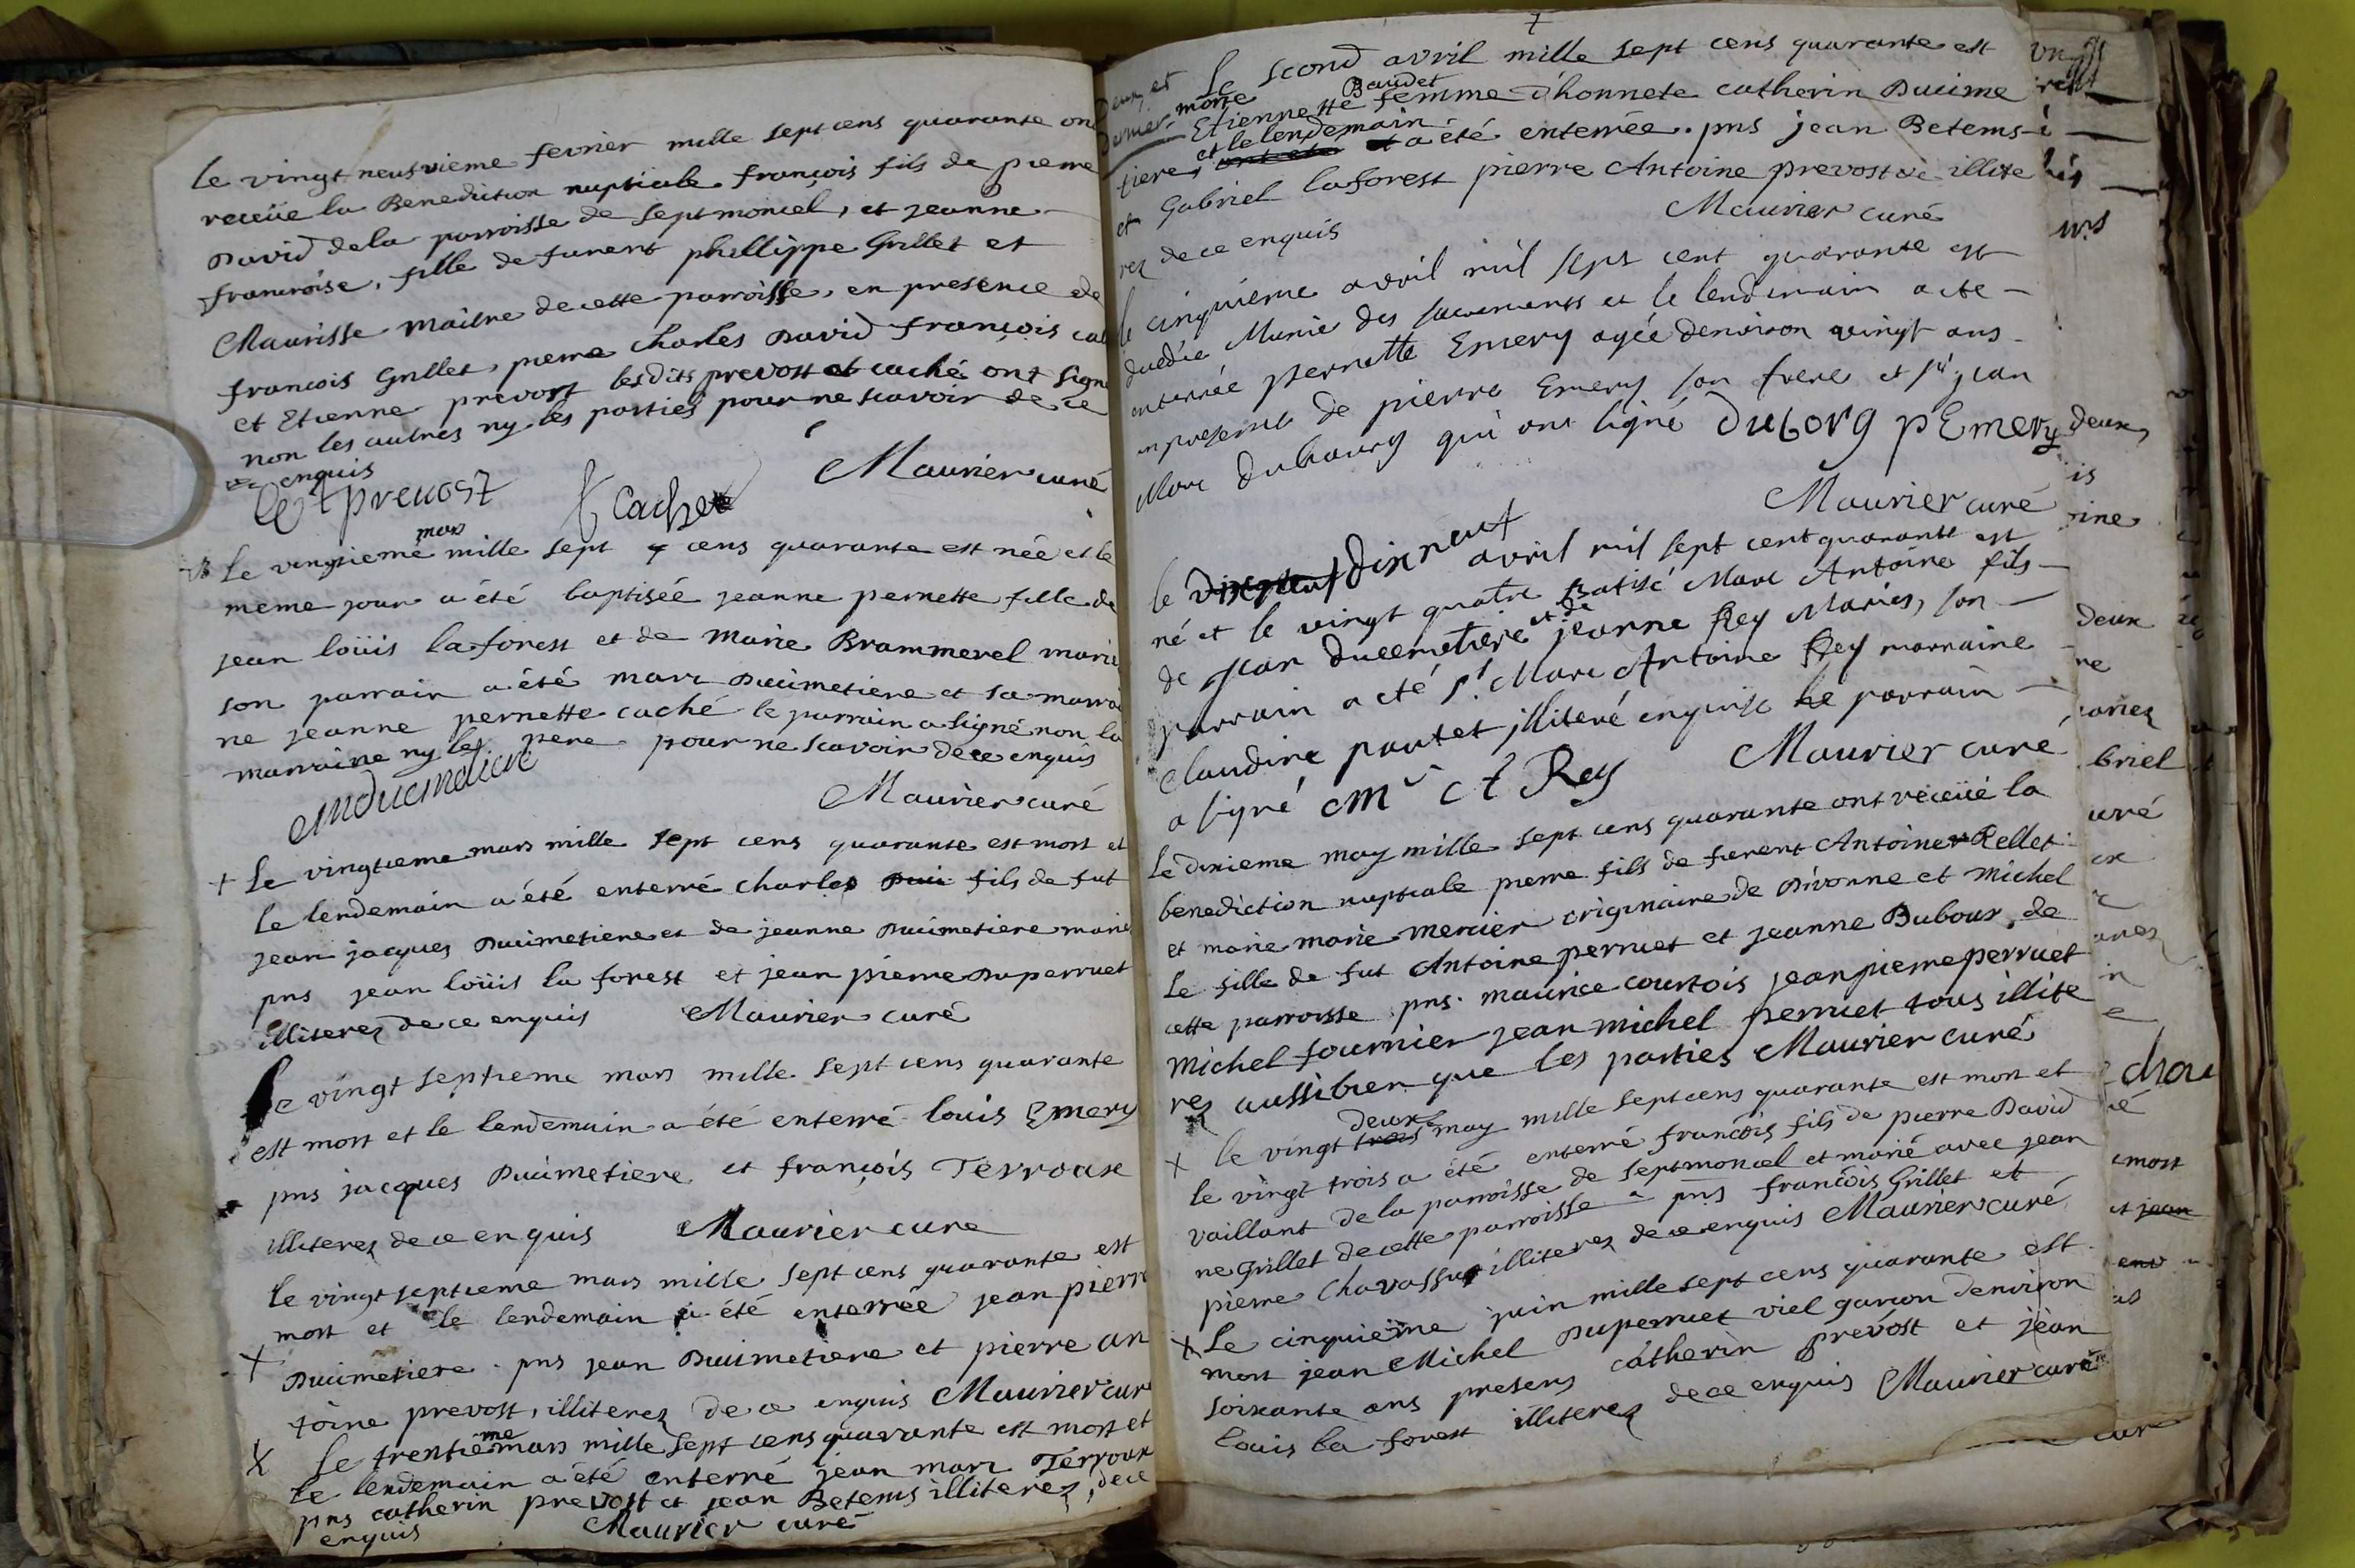 le vingt neufvieme fevrier mille sept cens quarante ont
receüe la Benediction nuptiale françois fils de pierre
David de la parroisse de septmoncel, et jeanne
francoise, fille de furent phillippe Grillet et
Maurisse maitre de cette parroisse, en presence de
francois Grillet, pierre charles David françois
et Etienne prevost lesdits prevost et caché ont signé
non les autres ny les parties pour ne scavoir de ce
enquis
Maurier curé
Et prevost f Cachet
mars
Le vingtieme mille sept cens quarante est née et le
meme jour a été baptisée jeanne pernette fille de
jean loüis laforest et de marie Brammerel mariez
son parrain a été marc Ducimetiere et sa marrai
ne jeanne pernette caché le parrain a signé non la
marraine ny les pere pour ne scavoir de ce enquis
mducimetiere
Maurier curé
+ Le vingtieme mars mille sept cens quarante est mort et
le lendemain a été enterré charles fils de fut
jean jacques Ducimetiere et de jeanne Ducimetiere mariez
pns jean loüis la forest et jean pierre Duperruet
illiterez de ce enquis Maurier curé
Le vingt septieme mars mille sept cens quarante
est mort et le lendemain a été enterré louis Emery
pns jacques Ducimetiere et françois Terroux
illiterez de ce enquis Maurier cure
le vingt septieme mars mille sept cens quarante est
mort et le lendemain a été enterrée jean pierre
+ Ducimetiere. pns jean Ducimetiere et pierre an
toine prevost, illiterez de ce enquis Maurier curé
me
X Le trentie mars mille sept cens quarante est mort et
le lendemain a été enterré jean marc Terroux
pns catherin prevost et jean Betems illiterez, de ce
enquis Maurier curé
Le second avril mille sept cens quarante est
morte Baudet
Etiennette femme d'honnete catherin Ducime
et le lendemain
tiere, a été enterrée. pns jean Betems
et Gabriel laforest pierre Antoine prevost illite
rez de ce enquis Maurier curé
le cinquieme avril mil sept cent quarante est
Munie des sacrements et le lendemain a ete
enterrée pernette Emery agée denviron vingt ans
en presence de pierre Emery son frere et sr jean
Marc dubourg qui ont signé Duborg pEmery
Maurier curé
le dixneuf avril mil sept cent quarante est
né et le vingt quatre Batisé Marc Antoine fils
et de
de jean ducemetiere jeanne Rey Mariés, son
parrain a eté sr. Marc Antoine Rey marraine
claudine pautet illiteré enquise le parrain
a signé mc A Rey Maurier curé
Le dixieme may mille sept cens quarante ont receüe la
benediction nuptiale pierre fils de furent Antoine Rellet
et marie marie mercier originaire de Divonne et michel
le fille de fut Antoine perruet et jeanne Dubour, de
cette parroisse pns. maurice courtois jean pierre perruet
michel fournier jean michel perruet tous illite
rez aussi bien que les parties Maurier curé
deux
X le vingt trois may mille sept cens quarante est mort et
le vingt trois a été enterré françois fils de pierre David
vaillant de la parroisse de septmoncel et marié avec jean
ne Grillet de cette parroisse pns françois Grillet et
pierre Chavassus illiterez de ce enquis Maurier curé
X Le cinquieme juin mille sept cens quarante est
mort jean Michel Duperruet viel garcon denviron
soixante ans presens catherin prevost et jean
louis la forest illiterez de ce enquis Maurier curé
deux
is
rine
deux
ne
briel
uré
in
e
mort
et jean
curé